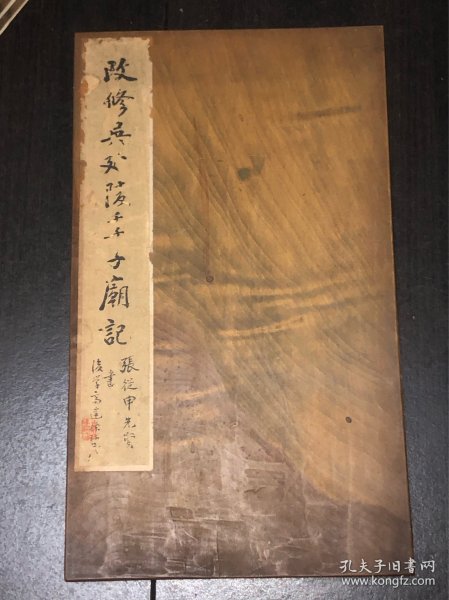 改修吴延陵季子廟記
張從申先賢
書
後學
孔夫子旧书网
www.kongfz.com